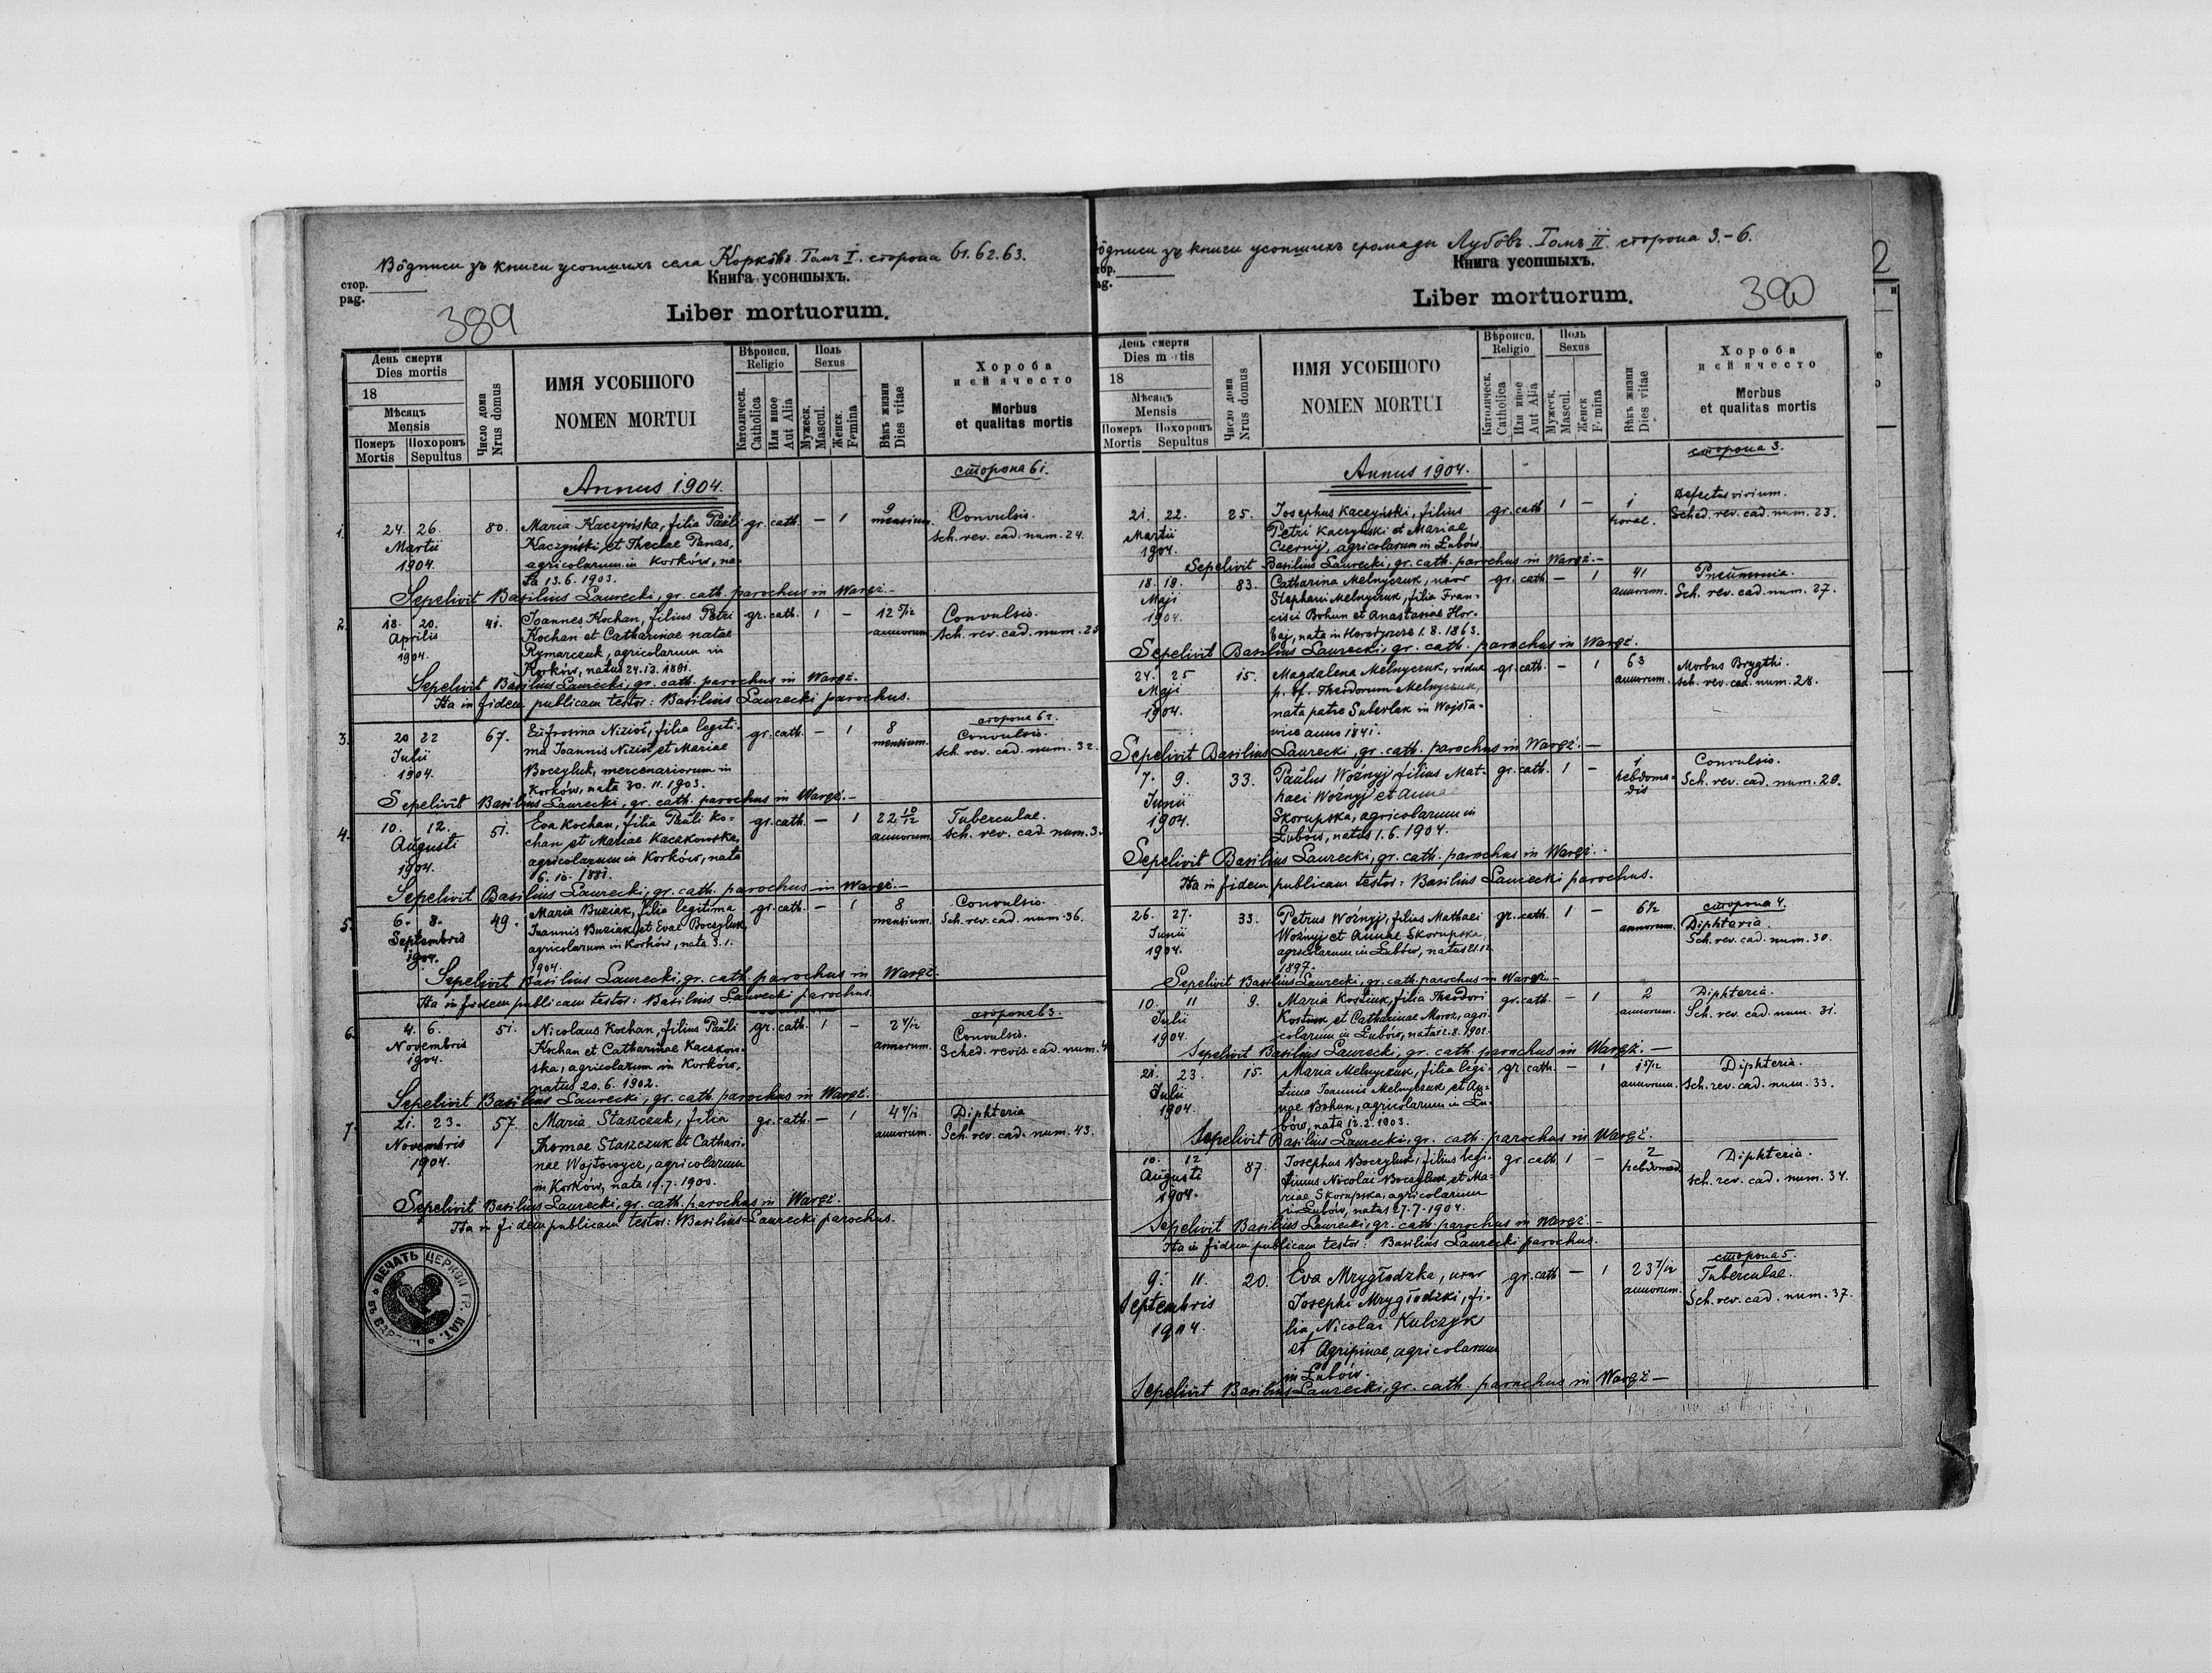 Вôдписи зъ книги усопшихъ села Корковъ. Томъ I. сторона 61. 62. 63.
Книга усопшыхъ.
стор.
pag.
389
Liber mortuorum.
День смерти
Dies mortis
18
Мѣсяцъ
Mensis
Померъ Похоронъ
Mortis Sepultus
Число дома
Nrus domus
ИМЯ УСОБШОГО
NOMEN MORTUI
Вѣроисп.
Religio
Католическ.
Catholica
Или иное
Aut Alia
Полъ
Sexus
Мужеск.
Mascul.
Женск
Femina
Вѣкъ жизни
Dies vitae
Хороба
и ей ячесто
Morbus
et qualitas mortis
сторона 61.
Annus 1904.
1. 24. 26. 80. Maria Kaczyńska, filia Pauli gr. cath. — 1 9 Convulsio.
Martii Kaczyński et Theclae Panas, mensium. Sch. rev. cad. num. 24.
1904. agricolarum in Korków, na-
ta 13. 6. 1903.
Sepelivit Basilius Laurecki, gr. cath. parochus in Waręż. —
2. 18. 20. 41. Joannes Kochan, filius Petri gr. cath. 1 — 12 5/12 Convulsio.
Aprilis Kochan et Catharinae natae annorum. Sch. rev. cad. num.
1904. Rymarczuk, agricolarum in
Korków, natus
Sepelivit Basilius Laurecki, gr. cath. parochus in Waręż.
Ita in fidem publicam testor: Basilius Laurecki parochus.
сторона 62.
3. 20 22 67. Eufrosina Nizioł, filia legiti- gr. cath. — 1 8 Convulsio.
Julii ma Joannis Nizioł et Mariae mensium. Sch. rev. cad. num. 32.
1904. Boczyluk, mercenariorum in
Korków, nata 30. 11. 1903.
Sepelivit Basilius Laurecki, gr. cath. parochus in Waręż. —
4. 10. 12. 51. Eva Kochan, filia Pauli Ko- gr. cath. — 1 22 10/12 Tuberculae.
Augusti chan et Mariae Kaczkowska, annorum. Sch. rev. cad. num.
1904. agricolarum in Korków, nata
6. 10. 1881.
Sepelivit Basilius Laurecki, gr. cath. parochus in Waręż. —
5. 6. 8. 49. Maria Buziak, filia legitima gr. cath. — 1 8 Convulsio.
Septembris Joannis Buziak et Evae Boczyluk, mensium. Sch. rev. cad. num. 36.
1904. agricolarum in Korków, nata 3. 1.
1904
Sepelivit Basilius Laurecki, gr. cath. parochus in Waręż.
Ita in fidem publicam testor: Basilius Laurecki parochus.
сторона 63.
6. 4. 6. 51. Nicolaus Kochan, filius Pauli gr. cath. 1 — 2 4/12 Convulsio.
Novembris Kochan et Catharinae Kaczkow- annorum. Sched. revis. cad. num.
1904. ska, agricolarum in Korków,
natus 20. 6. 1902.
Sepelivit Basilius Laurecki, gr. cath. parochus in Waręż.
7. 21. 23. 57. Maria Staszczuk, filia gr. cath. — 1 4 4/12 Diphteria
Novembris Thomae Staszczuk et Cathari- annorum. Sch. rev. cad. num. 43.
1904. nae Wojtowycz, agricolarum
in Korków, nata 19. 7. 1900.
Sepelivit Basilius Laurecki, gr. cath. parochus in Waręż.
Ita in fidem publicam testor: Basilius Laurecki parochus.
ПЕЧАТЬ ЦЕРКВИ ГР. КАТ.
ôдписи зъ книги усопшихъ громады Лубôвъ. Томъ II. сторона 3.-6.
Книга усопшыхъ.
390
Liber mortuorum.
День смерти
Dies mortis
18
Мѣсяцъ
Mensis
Померъ Похоронъ
Mortis Sepultus
Число дома
Nrus domus
ИМЯ УСОБШОГО
NOMEN MORTUI
Вѣроисп.
Religio
Католическ.
Catholica
Или иное
Aut Alia
Полъ
Sexus
Мужеск.
Mascul.
Женск
Femina
Вѣкъ жизни
Dies vitae
Хороба
и ей ячесто
Morbus
et qualitas mortis
сторона 3.
Annus 1904.
21. 22. 25. Josephus Kaczyński, filius gr. cath 1 — 1 Defectus virium.
Martii Petri Kaczyński et Mariae horae. Sched. rev. cad. num. 23.
1904. Czernij, agricolarum in Łubów.
Sepelivit Basilius Laurecki, gr. cath. parochus in Waręż. —
18. 19. 83. Catharina Melnyczuk, uxor gr. cath — 1 41 Pneumonia.
Maji Stephani Melnyczuk, filia Fran- annorum. Sch. rev. cad. num. 27.
1904. cisci Bohun et Anastasiae Hor-
baj, nata in Horodyszcze 1. 8. 1863.
Sepelivit Basilius Laurecki, gr. cath. parochus in Waręż.
24. 25 15. Magdalena Melnyczuk, vidua gr. cath. — 1 63 Morbus Brygthi.
Maji p. def. Theodorum Melnyczuk, annorum. Sch. rev. cad. num. 28.
1904. nata patre Suberlak in Wojsła-
wice anno 1841.
Sepelivit Basilius Laurecki, gr. cath. parochus in Waręż. —
7. 9. 33. Paulus Woźnyj filius Mat- gr. cath. 1 — 1 Convulsio.
Junii haei Woźnyj et Annae hebdoma- Sch. rev. cad. num. 29.
1904. Skorupska, agricolarum in dis
Łubów, natus 1. 6. 1904.
Sepelivit Basilius Laurecki, gr. cath. parochus in Waręż.
Ita in fidem publicam testor: Basilius Laurecki parochus.
сторона 4.
26. 27. 33. Petrus Woźnyj, filius Mathaei gr. cath. 1 — 6 1/2 Diphteria.
Junii Woźnyj et Annae Skorupska, annorum. Sch. rev. cad. num. 30.
1904. agricolarum in Łubów, natus 21. 12
1897.
Sepelivit Basilius Laurecki, gr. cath. parochus in Waręż —
10. 11 9. Maria Kostiuk, filia Theodori gr. cath. — 1 2 Diphteria.
Julii Kostiuk et Catharinae Moroz, agri- annorum. Sch. rev. cad. num. 31.
1904. colarum in Łubów, nata 2. 8. 1902.
Sepelivit Basilius Laurecki, gr. cath. parochus in Waręż. —
21. 23. 15. Maria Melnyczuk, filia legi- gr. cath. — 1 1 5/12 Diphteria.
Julii tima Joannis Melnyczuk et An- annorum. Sch. rev. cad. num. 33.
1904. nae Bohun, agricolarum in Łu-
bów, nata 12. 2. 1903.
Sepelivit Basilius Laurecki, gr. cath. parochus in Waręż.
10. 12 87. Josephus Boczyluk, filius legi- gr. cath 1 — 2 Diphteria.
Augusti timus Nicolai Boczyluk et Ma- hebdomad. Sch. rev. cad. num. 34.
1904. riae Skorupska, agricolarum
in Łubów, natus 27. 7. 1904.
Sepelivit Basilius Laurecki, gr. cath. parochus in Waręż. —
Ita in fidem publicam testor: Basilius Laurecki parochus.
сторона 5.
9. 11. 20. Eva Mrygłodzka, uxor gr. cath — 1 23 7/12 Tuberculae.
Septembris Josephi Mrygłodzki, fi- annorum. Sch. rev. cad. num. 37.
1904. lia Nicolai Kulczyk
et Agripinae, agricolarum
in Łubów.
Sepelivit Basilius Laurecki, gr. cath. parochus in Waręż —
2